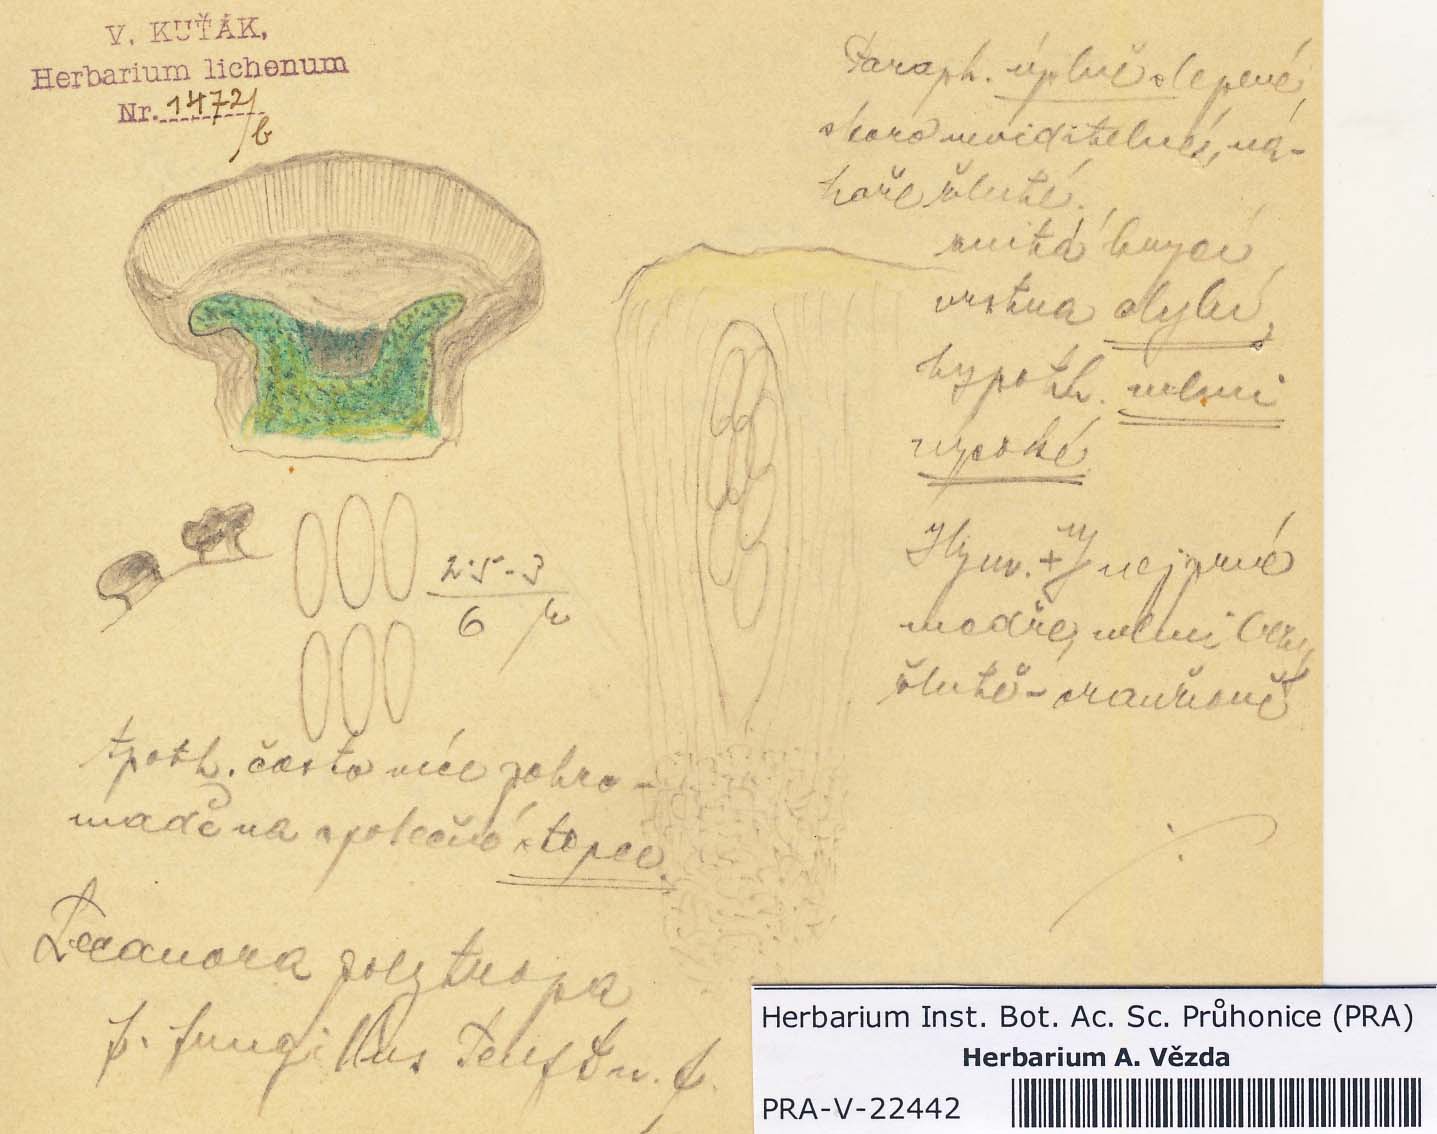 V. KUŤÁK,
Herbarium lichenum
Nr. 1472/b
Paraph. úplně slepené,
skoro neviditelné, na-
hoře žluté.
vrstva
hypoth. velmi
vysoké
Hym. + nejprve
modře, velmi brzy
žlutě-oranžově
2·5-3
6 μ
Apoth. často více pohro-
madě na společné stopce.
Lecanora polytropa
f. fungillus
Herbarium Inst. Bot. Ac. Sc. Průhonice (PRA)
Herbarium A. Vězda
PRA-V-22442